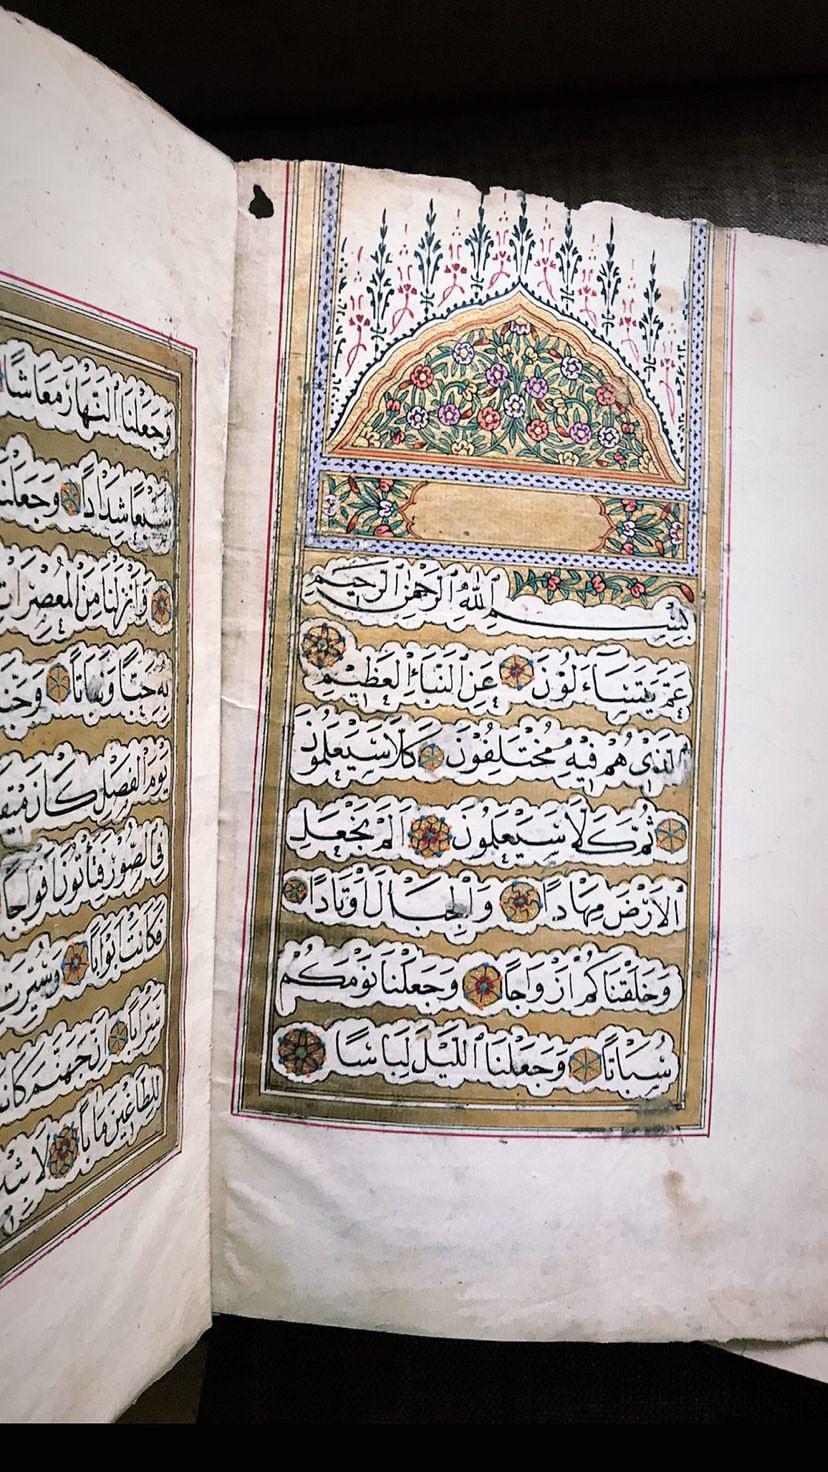 بِسْمِ اللّٰهِ الرَّحْمٰنِ الرَّحِيمِ
عَمَّ يَتَسَاءَلُونَ عَنِ النَّبَاِ الْعَظِيمِ
الَّذِي هُمْ فِيهِ مُخْتَلِفُونَ كَلَّا سَيَعْلَمُونَ
ثُمَّ كَلَّا سَيَعْلَمُونَ اَلَمْ نَجْعَلِ
الْاَرْضَ مِهَادًا وَالْجِبَالَ اَوْتَادًا
وَخَلَقْنَاكُمْ اَزْوَاجًا وَجَعَلْنَا نَوْمَكُمْ
سُبَاتًا وَجَعَلْنَا اللَّيْلَ لِبَاسًا
وَجَعَلْنَا النَّهَارَ مَعَاشًا
سَبْعًا شِدَادًا وَجَعَلْنَا
وَاَنْزَلْنَا مِنَ الْمُعْصِرَاتِ
بِهِ حَبًّا وَنَبَاتًا
يَوْمَ الْفَصْلِ كَانَ
فِي الصُّورِ فَتَاْتُونَ اَفْوَاجًا
فَكَانَتْ اَبْوَابًا وَسُيِّرَتِ
سَرَابًا اِنَّ جَهَنَّمَ
لِلطَّاغِينَ مَاٰبًا